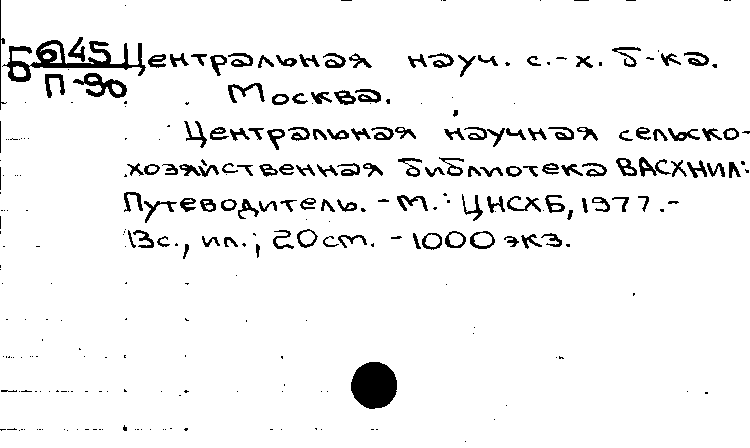 Б 6145 Центральная науч. с.-х. б-ка.
П-90 Москва.
Центральная научная сельско-
хозяйственная библиотека ВАСХНИЛ:
Путеводитель. - М.: ЦНСХБ, 1977.-
13с., ил.; 20cm. - 1000 экз.